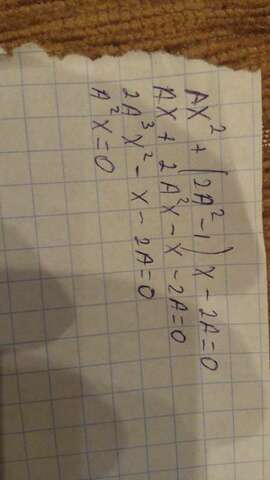 AX² + (2A²-1)X - 2A=0
AX + 2A²X - X - 2A=0
2A³X² - X - 2A=0
A²X=0